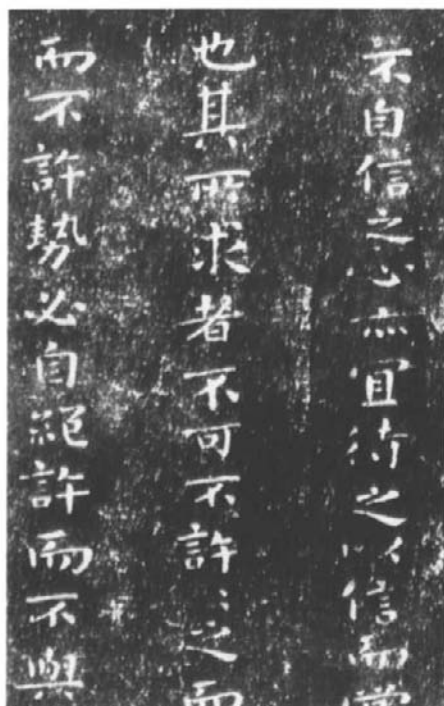 不自信之心亦宜待之以信而當
也其所求者不可不許〻之而
而不許勢必自絕許而不與